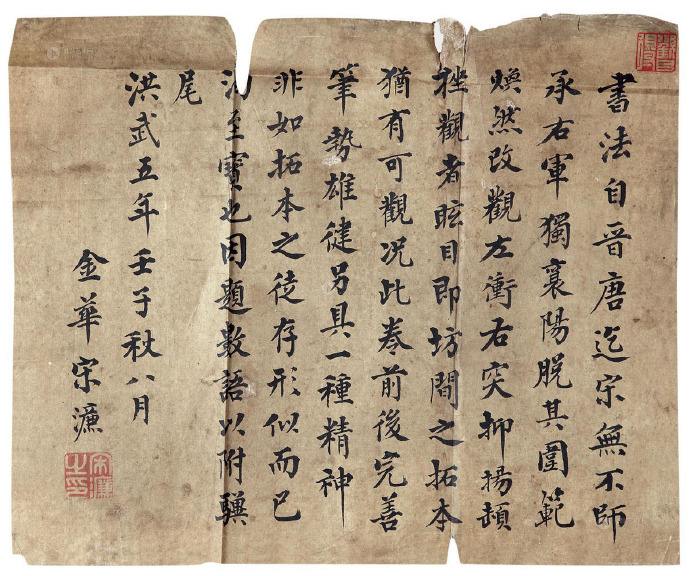 書法自晉唐迄宋無不師
承右軍獨襄陽脫其圍範
煥然改觀左衝右突抑揚頓
挫觀者眩目即坊間之拓本
猶有可觀況此卷前後完善
筆勢雄健另具一種精神
非如拓本之徒存形似而已
洵至寶也因題數語以附驥
尾
洪武五年壬子秋八月
金華宋濂
宋濂之印